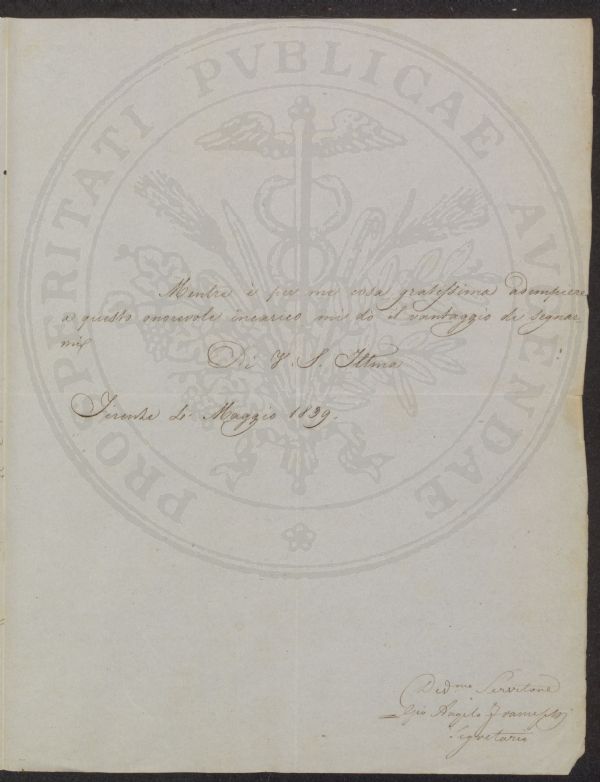 PROSPERITATI PVBLICAE AVGENDAE
Mentre è per me cosa gratissima adempiere
a questo onorevole incarico mi dò il vantaggio di segnar
mi
Di V. S. Illma
Firenze li Maggio 1839.
Devmo Servitore
Gio Angelo Franceschi
Segretario